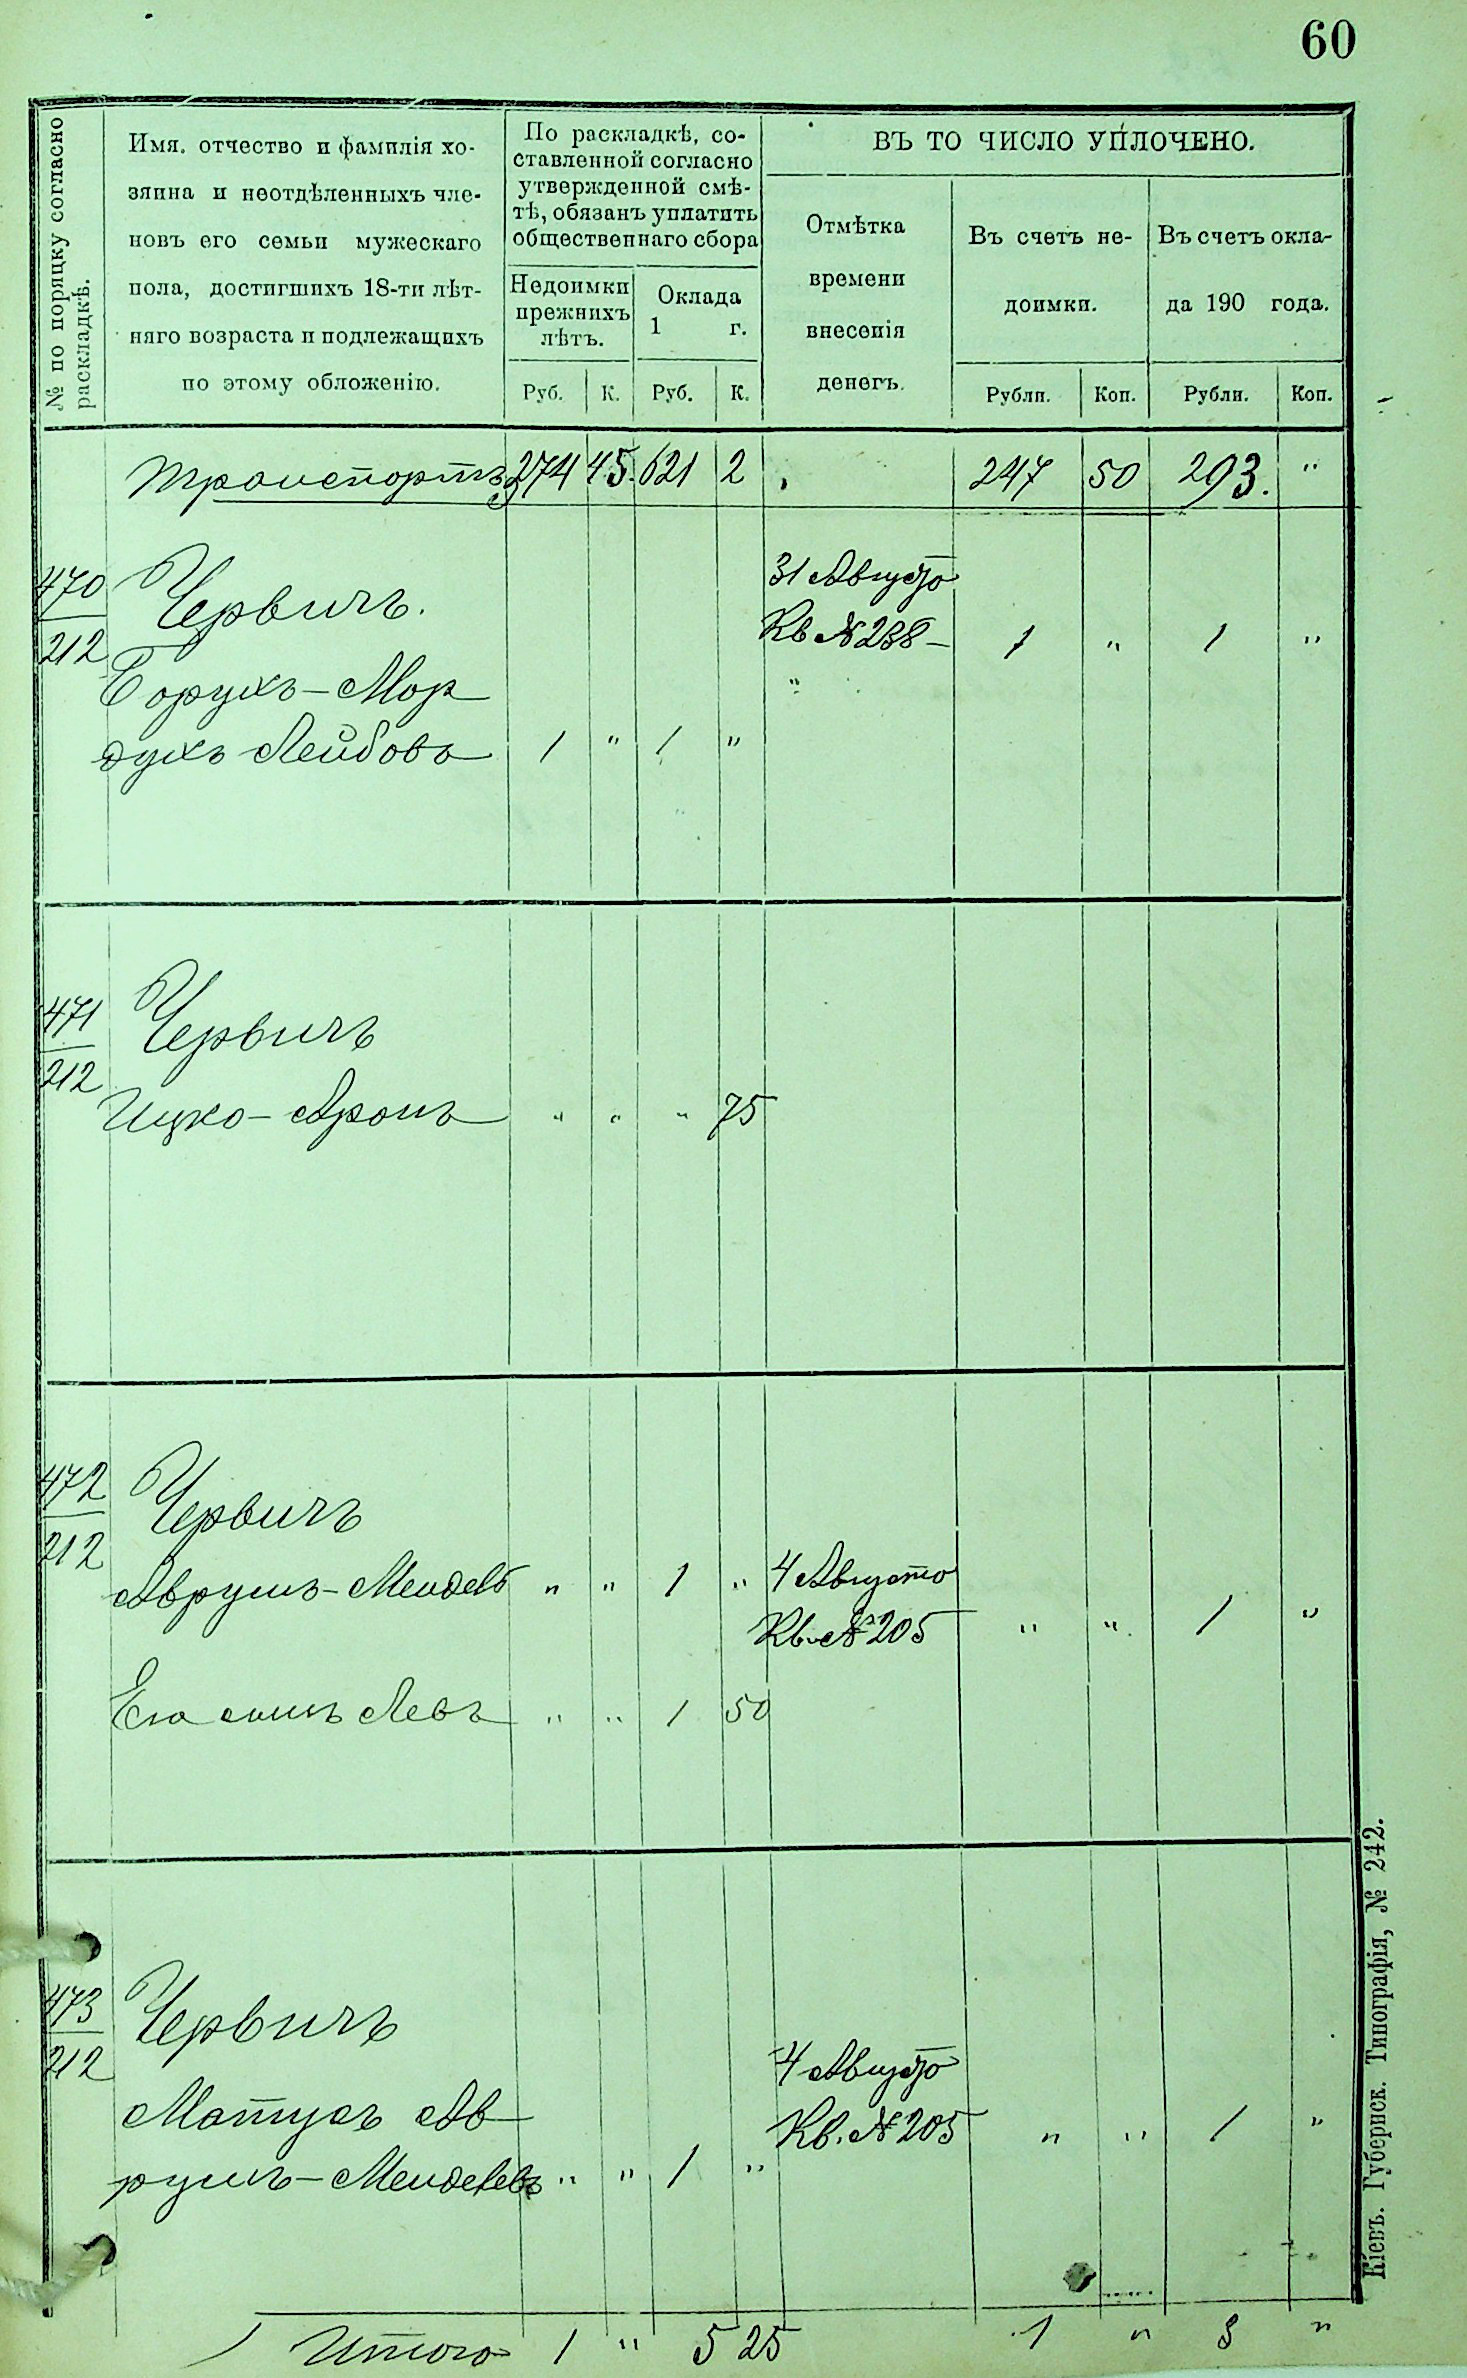 60
№ по поряцку согласно
раскладкѣ.
Имя, отчество и фамилія хо-
зяина и неотдѣленныхъ чле-
новъ его семьи мужескаго
пола, достигшихъ 18-ти лѣт-
няго возраста и подлежащихъ
по этому обложенію.
По раскладкѣ, со-
ставленной согласно
утвержденной смѣ-
тѣ, обязанъ уплатить
общественнаго сбора
Недоимки
прежнихъ
лѣтъ.
Оклада
1 г.
Руб. К. Руб. К.
ВЪ ТО ЧИСЛО УПЛОЧЕНО.
Отмѣтка
времени
внесенія
денегъ.
Въ счетъ не-
доимки.
Въ счетъ окла-
да 190 года.
Рубли. Коп. Рубли. Коп.
Транспортъ 274 45. 621 2 247 50 293. "
470
212
Червичъ.
31 Августа
Кв № 238 1 " 1 "
Борухъ-Мор
духъ Лейбовъ 1 " 1 "
471
212
Червичъ
Ицко-Аронъ " " " 75
472
212
Червичъ
Аврумъ-Мендель " " 1 " 4 Августа
Кв. № 205 " " 1 "
Его сынъ Левъ " " 1 50
473
212
Червичъ
4 Августа
Матусъ Ав
Кв. № 205 " " 1 "
румъ-Менделевъ " " 1 "
Итого 1 " 5 25 1 " 3 "
Кіевъ. Губернск. Типографія, № 242.